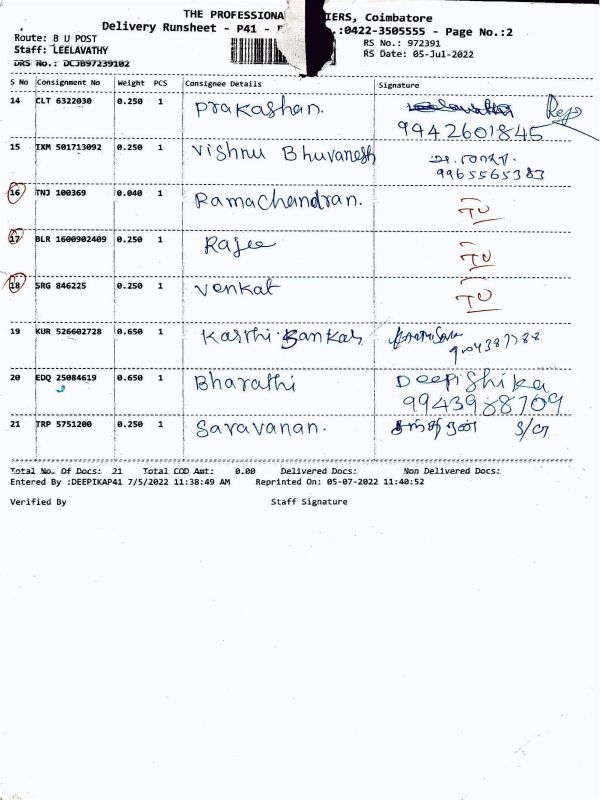 THE PROFESSIONA IERS, Coimbatore
Delivery Runsheet - P41 - .:0422-3505555 - Page No.:2
Route: B U POST RS No.: 972391
Staff: LEELAVATHY RS Date: 05-Jul-2022
DRS No.: DCJB97239102
S No Consignment No Weight PCS Consignee Details Signature
14 CLT 6322030 0.250 1 Prakashan.
9942601845
15 IXM 501713092 0.250 1 Vishnu Bhuvanesh
9965565383
16 TNJ 100369 0.040 1 Ramachandran. TU
17 BLR 1600902409 0.250 1 Rajee TU
18 SRG 846225 0.250 1 Venkat TU
19 KUR 526602728 0.650 1 Karthi Sankar
20 EDQ 25084619 0.650 1 Bharathi Deepishika
9943988709
21 TRP 5751200 0.250 1 Saravanan.
Total No. Of Docs: 21 Total COD Amt: 0.00 Delivered Docs: Non Delivered Docs:
Entered By :DEEPIKAP41 7/5/2022 11:38:49 AM Reprinted On: 05-07-2022 11:40:52
Verified By Staff Signature